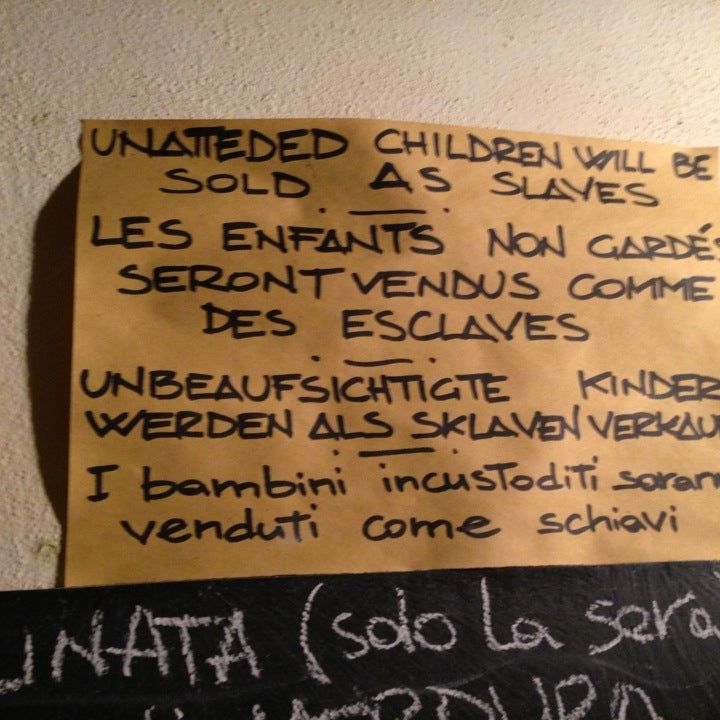 UNATTEDED CHILDREN WILL BE
SOLD AS SLAVES
LES ENFANTS NON GARDÉS
SERONT VENDUS COMME
DES ESCLAVES
UNBEAUFSICHTIGTE KINDER
WERDEN ALS SKLAVEN VERKAU
I bambini incustoditi saran
venduti come schiavi
INATA (solo la sera